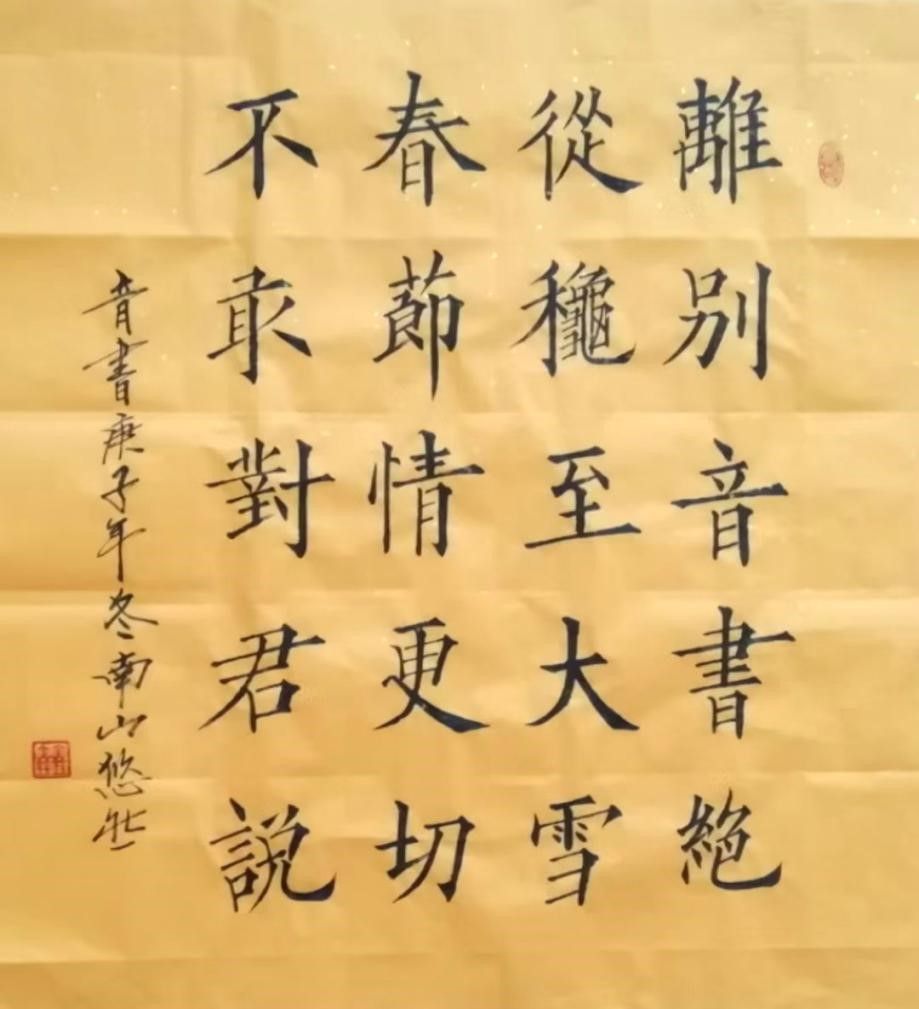 離別音書絶
從龝至大雪
春莭情更切
不敢對君説
書庚子年冬南山悠然